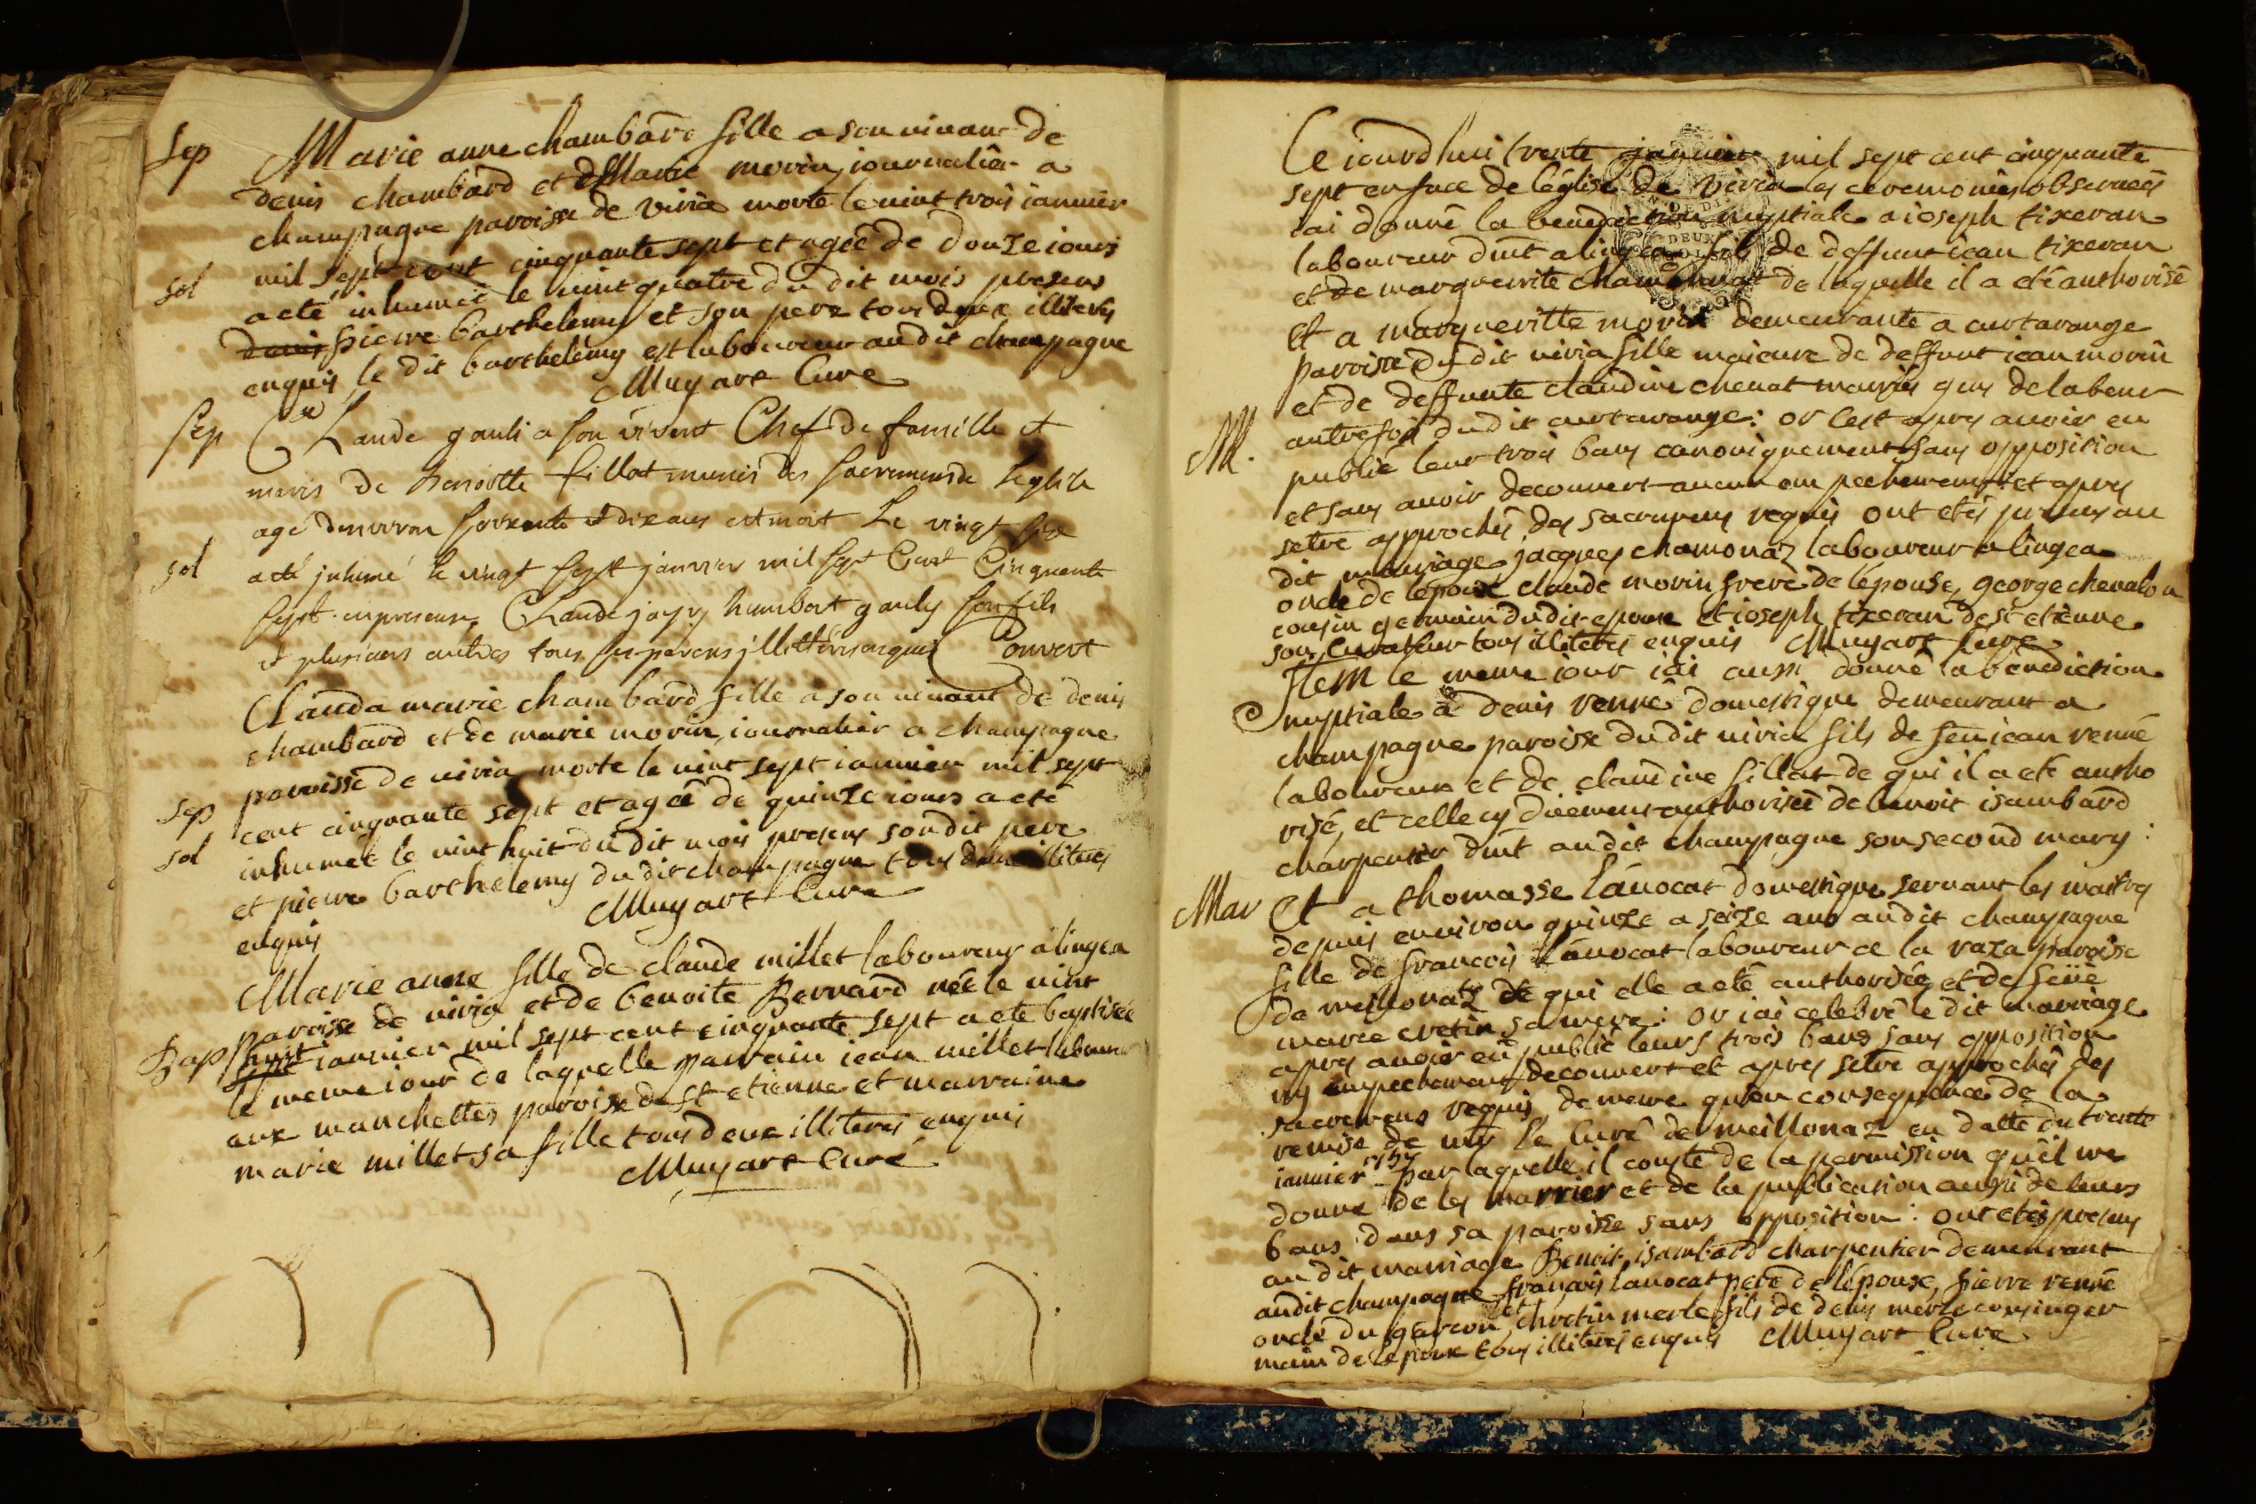 Sep
Marie anne chambard fille a son vivant de
denis chambard et de Marie morin, journalier a
champagne paroisse de viria morte le vint trois ianvier
mil sept cent cinquante sept et agée de douze iours
sol
a eté inhumée le vint quatre du dit mois presens
denis pierre barthelemy et son pere tous deux illiterés
enquis, le dit barthelemy est laboureur au dit champagne
Muyart Curé
Sep
Claude gauli a son vivent Chef de famille et
maris de benoitte fillot munis des sacremens de leglise
agé denviron soixente et dix ans est mort Le vingt six
sol
a eté inhumé le vingt sept janvier mil sept Cent Cinquante
sept en presence Claude humbert gauly son fils
et plusieurs autres tous ses parens jllitterés enquis Convert
Clauda marie chambard fille a son vivant de denis
chambard et de marie morin, iournalier a champagne
paroisse de viria morte le vint sept ianvier mil sept
Sep
cent cinquante sept et agée de quinze iours a eté
sol
inhumée le vint huit du dit mois presens son dit pere
et pierre barthelemy du dit champagne tous deux illiterés
enquis
Muyart Curé
Marie anne fille de claude millet laboureur a lingea
paroisse de viria et de benoite Bernard née le vint
Bap
huit ianvier mil sept cent cinquante sept a eté baptisée
le meme iour de laquelle parrain iean millet laboureur
aux manchettes paroisse de st etienne et marraine
marie millet sa fille tous deux illiterés enquis
Muyart Curé
Ce iourdhui trente janvier mil sept cent cinquante
sept en face de léglise de viria les ceremonies observeés
iai donné la benediction nuptiale a ioseph tixeran
laboureur dmt a lingea fils de deffunt iean tixeran
et de marguerite chamonaz de laquelle il a eté authorisé
et a margueritte morin demeurante a curtarange
paroisse du dit viria fille maieure de deffunt iean morin
et de deffunte claudine chenat mariés gens de labeur
autrefois du dit curtarange: or cest apres avoir eu
M.
publié leur trois bans canoniquement sans opposition
et sans avoir decouvert aucun empechement: et apres
setre approchés des sacremens requis ont etés presens au
dit mariage jacques chamonaz laboureur a lingea
oncle de lépoux claude morin frere de lépouse, george chevalon
cousin germain du dit epoux et ioseph tixeran de st etienne
son curateur tous illiterés enquis Muyart Curé
Item le meme iour iai aussi donné la benediction
nuptiale a denis venné domestique demeurant a
champagne paroisse du dit viria fils de feu iean venné
laboureur et de claudine fillat de qui il a eté autho
risé, et celle cy duement authorisée de benoit isambard
charpentier dmt au dit champagne son second mary:
Mar
Et a thomasse lavocat domestique servant les maitres
depuis environ quinze a seize ans au dit champagne
fille de francois lavocat laboureur a la raza paroisse
de meillonaz de qui elle a eté authorisée et de feüe
marie cretin sa mere: or iai celebré le dit marriage
apres avoir eu publié leurs trois bans sans opposition
ny empechement decouvert et apres setre approchés des
sacremens requis, de meme qu'en consequence de la
remise de mr Le Curé de meillonaz en datte du trente
ianvier 1757 par laquelle il conste de la permission qu'il me
donne de les marrier et de la publication aussi de leurs
bans dans sa paroisse sans opposition: ont etés presens
au dit marriage Benoit isambard charpentier demeurant
au dit champagne, françois lavocat pere de lépouse, pierre venné
oncle du garcon, et chretin merle fils de denis merle cousin ger
main de lepoux tous illiterés enquis Muyart Curé